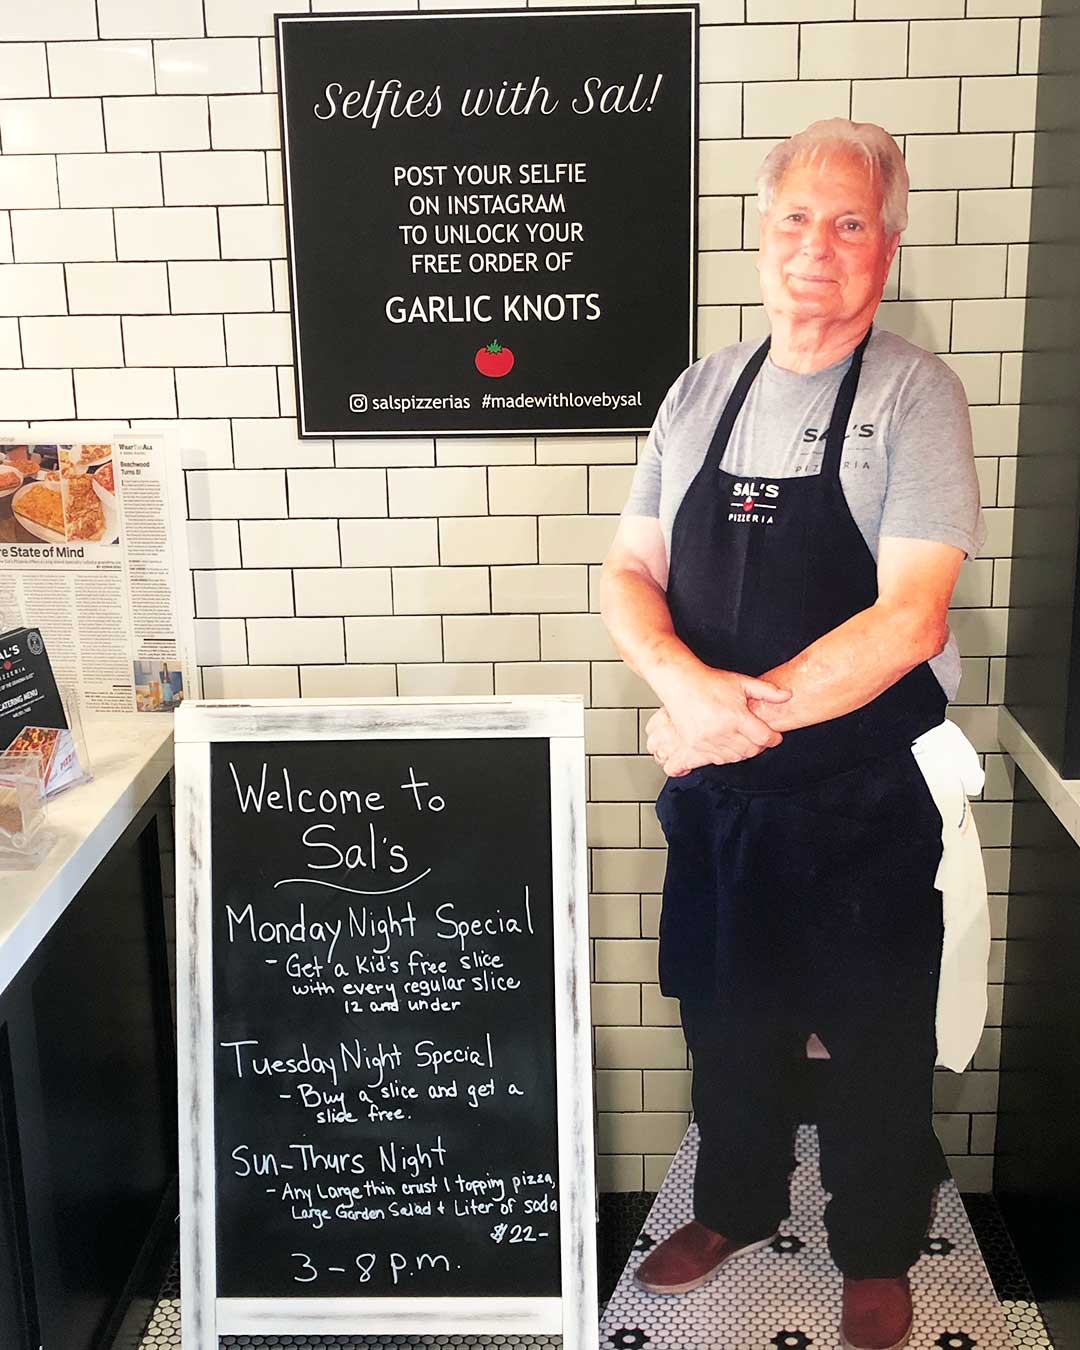 Selfies with Sal!
POST YOUR SELFIE
ON INSTAGRAM
TO UNLOCK YOUR
FREE ORDER OF
GARLIC KNOTS
salspizzerias #madewithlovebysal
SAL'S
PIZZERIA
SAL'S
PIZZERIA
Beachwood
Turns 8!
e State of Mind
AL'S
PIZZERIA
CATERING MENU
Welcome to
Sal's
Monday Night Special
- Get a Kid's free slice
with every regular slice
12 and under
Tuesday Night Special
- Buy a slice and get a
slice free.
Sun-Thurs Night
- Any Large thin crust 1 topping pizza,
Large Garden Salad + Liter of soda
$22-
3-8 p.m.